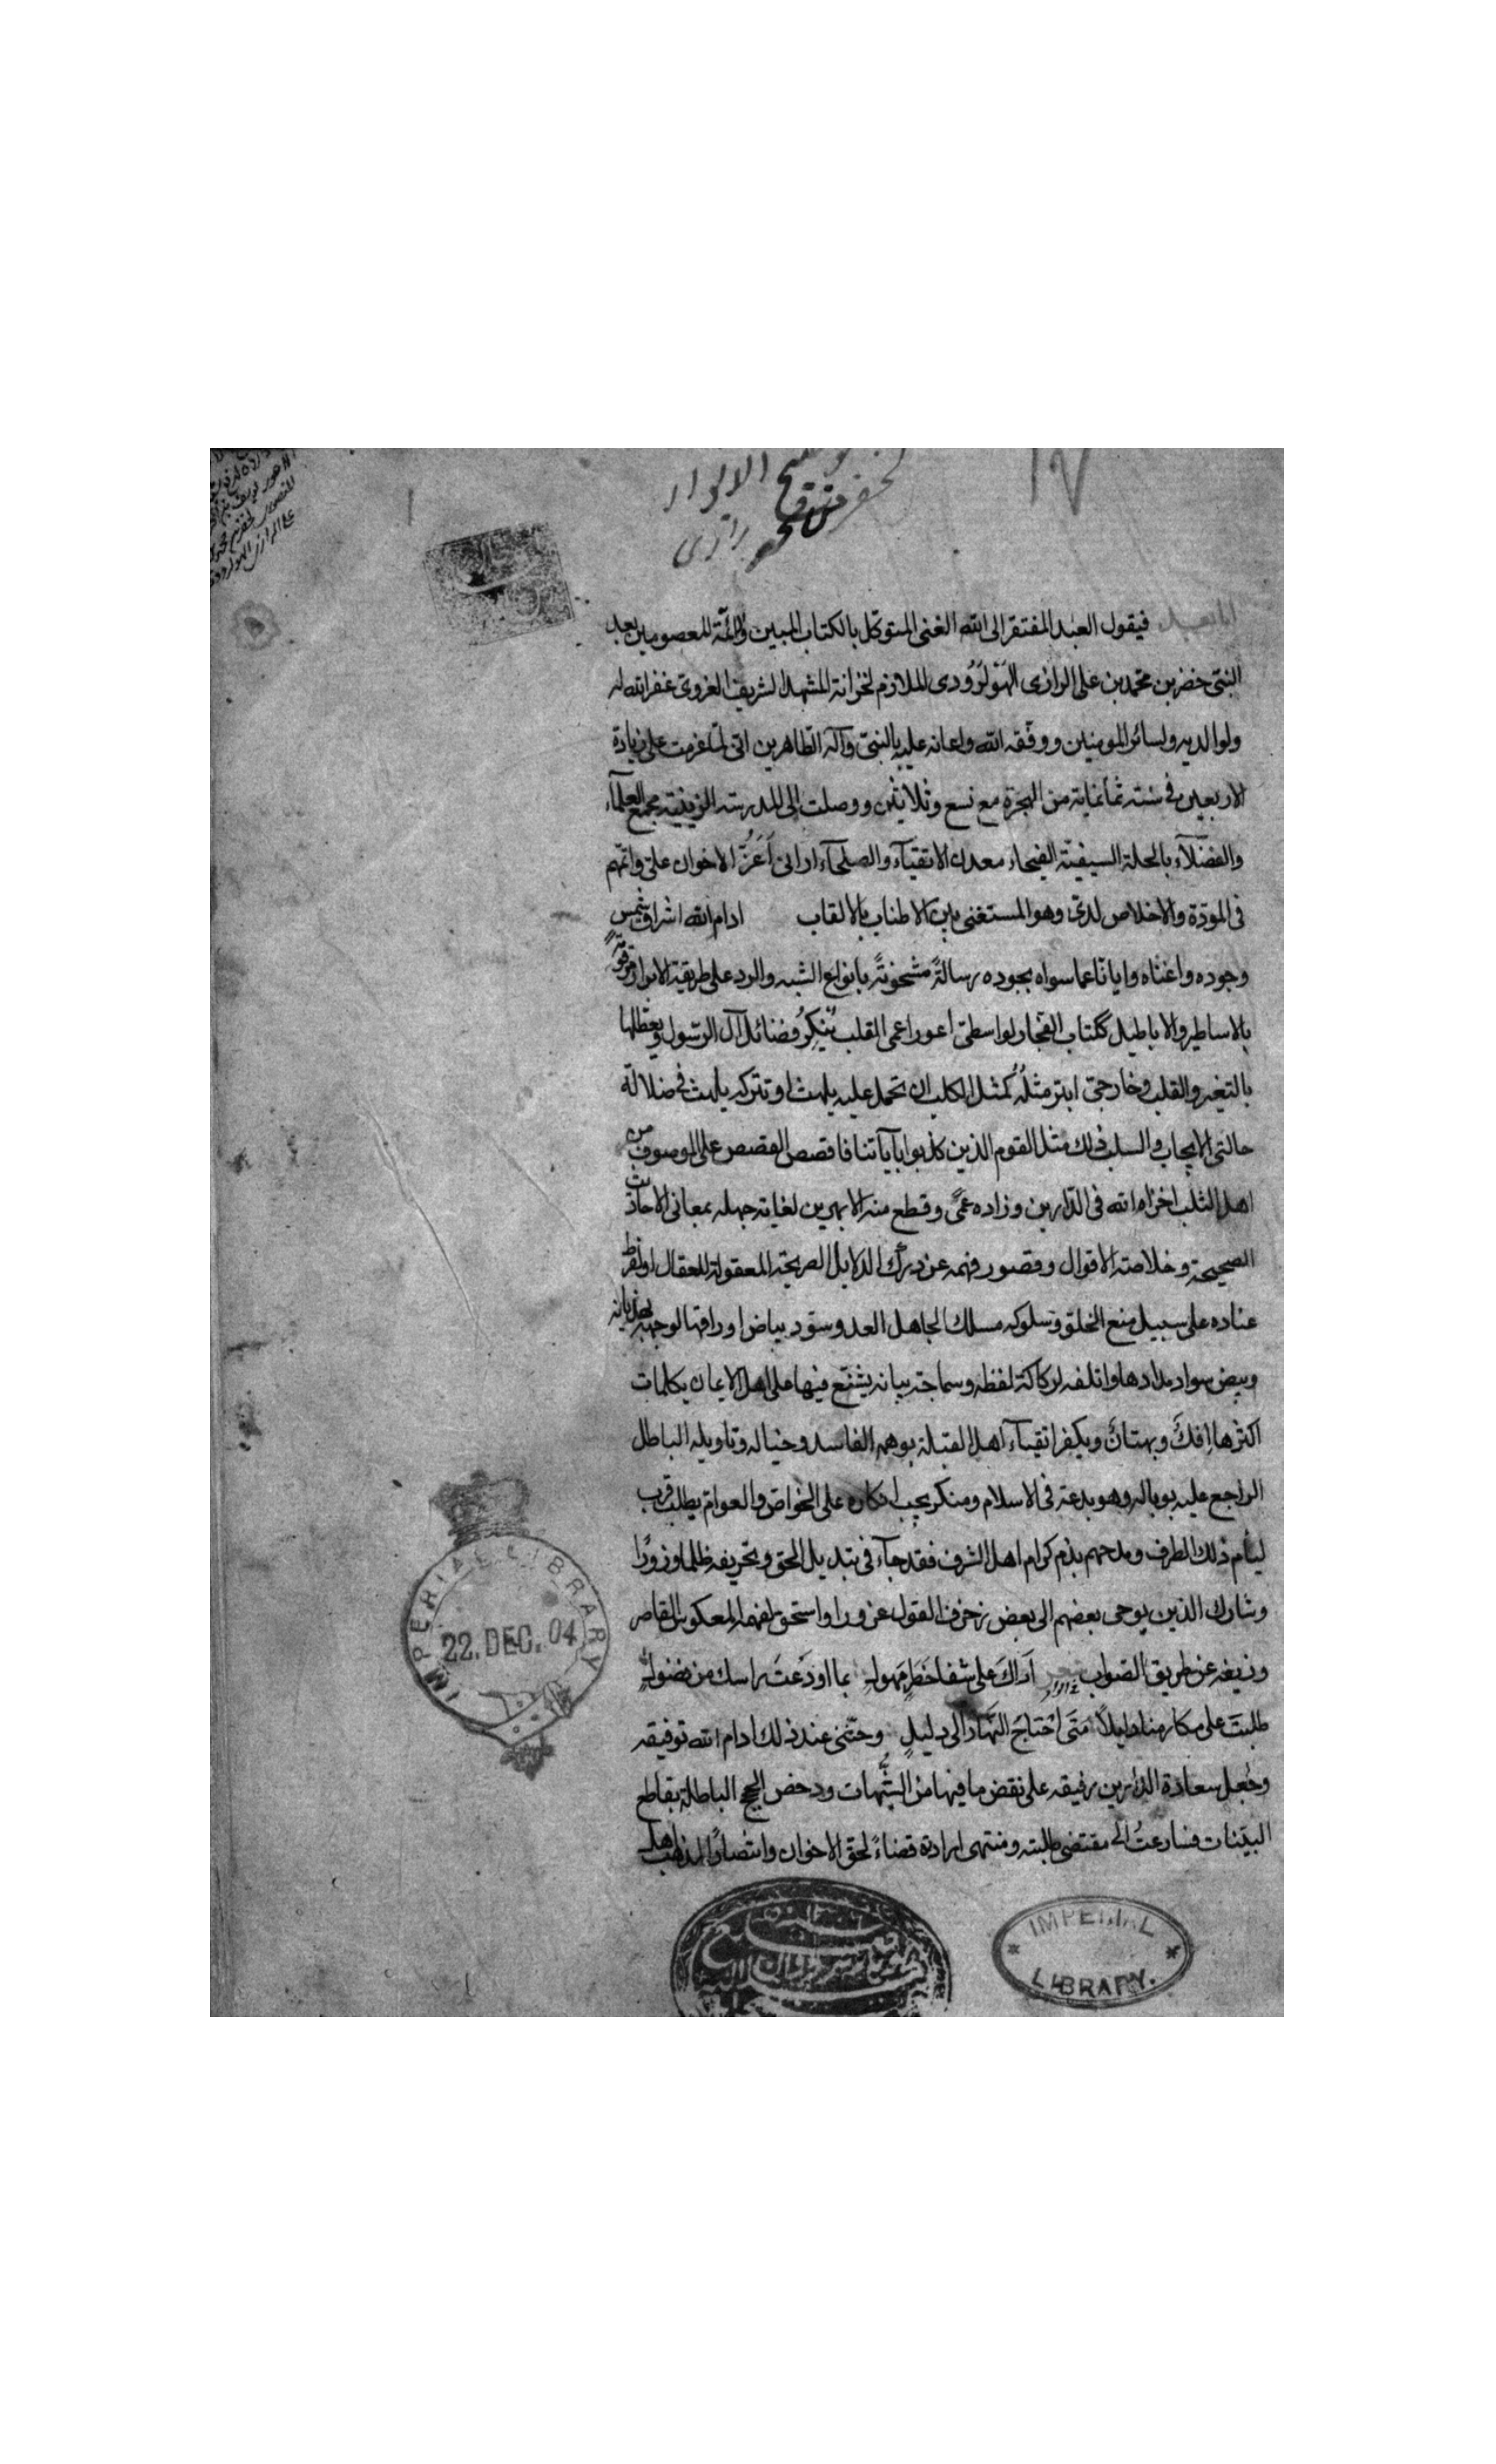 ١٧
الانوار
لخضر بن محمد رازي
اما بعد فيقول العبد المفتقر الى الله الغنى المتوكل بالكتاب المبين والائمة المعصومين بعد
النبى خضر بن محمد بن على الرازى الهَبَلرُودى الملازم لخزانة المشهد الشريف الغروى غفر الله له
ولوالديه ولسائر المومنين ووفقه الله واعانه عليه بالنبىّ وآله الطاهرين انى لما عزمت على زيارة
الاربعين فى سنة ثمانماية من الهجرة مع تسع وثلاثين ووصلت الى المدرسة الزينية مجمع العلمآء
والفضلآء بالحلة السيفيّة الفيحاء معدن الاتقيآء والصلحآء ارانى اَعَزُّ الاخوان علىّ واتمهم
فى المودّة والاخلاص لدىّ وهو المستغنى عن الاطناب بالالقاب ادام الله اشراق شمس
وجوده واغناه وايانا عما سواه بجوده رسالةً مشحونةً بانواع الشبه والرد على طريقة الابرار مرقومةً
بالاساطير والاباطيل ككتاب الفجار لواسطىّ اعور اعمى القلب يُنكِرُ فضائل آل الرسول ويعطلها
بالتغير والقلب وخارجىّ ابتر مثلُهُ كمثل الكلب ان تحمل عليه يلهث او تتركه يلهث فى ضلالة
حالتى الايجاب والسلب ذلك مثل القوم الذين كذبوا بآياتنا فاقصص القصص على الموصوف من
اهل الثلب اخزاه الله فى الدارين وزاده عمىً وقطع منه الابهرين لغاية جهله بمعانى الاحاديث
الصحيحة وخلاصة الاقوال وقصور فهمه عن درك الدلايل الصريحة المعقولة للعقال او لفرط
عناده على سبيل منع الخلق وسلوكه مسلك الجاهل العدو سوّد بياض اوراقها لوجهه بهذيانه
وبيض سواد مدادها واتلفه لركاكة لفظه وسماجة بيانه يشنّع فيها على اهل الايمان بكلمات
اكثرها اِفكٌ وبهتانٌ ويكفر اتقيآء اهل القبلة بوهمه الفاسد وخياله وتاويله الباطل
الراجع عليه بوباله وهو بدعة فى الاسلام ومنكر يجب انكاره على الخواصّ والعوامّ يطلب قرب
ليئام ذلك الطرف ومدحهم بذم كرام اهل الشرف فقد جآء فى تبديل الحق وتحريفه ظلما وزورًا
وشارك الذين يوحى بعضهم الى بعض زخرف القول غرورا واستحق لفهمه المعكوس القاصر
وزيغه عن طريق الصواب شعر اَراكَ على شفا خَطَرٍ مَهولٍ بما اودَعتَ راسك من فضولٍ
طلبتَ على مكارمنا دليلاً مَتَى احْتاجَ النَّهارُ الى دليلٍ وحثّنى عند ذلك ادام الله توفيقه
وجُعل سعادة الدارين رفيقه على نقض ما فيها من الشُّبهات ودحض الحجج الباطلة بقاطع
البيّنات فسارعتُ الى مقتضى طلبته ومنتهى ارادته قضاءً لحق الاخوان وانتصارًا لمذهب اهل
IMPERIAL LIBRARY
22. DEC. 04
IMPERIAL
LIBRARY.